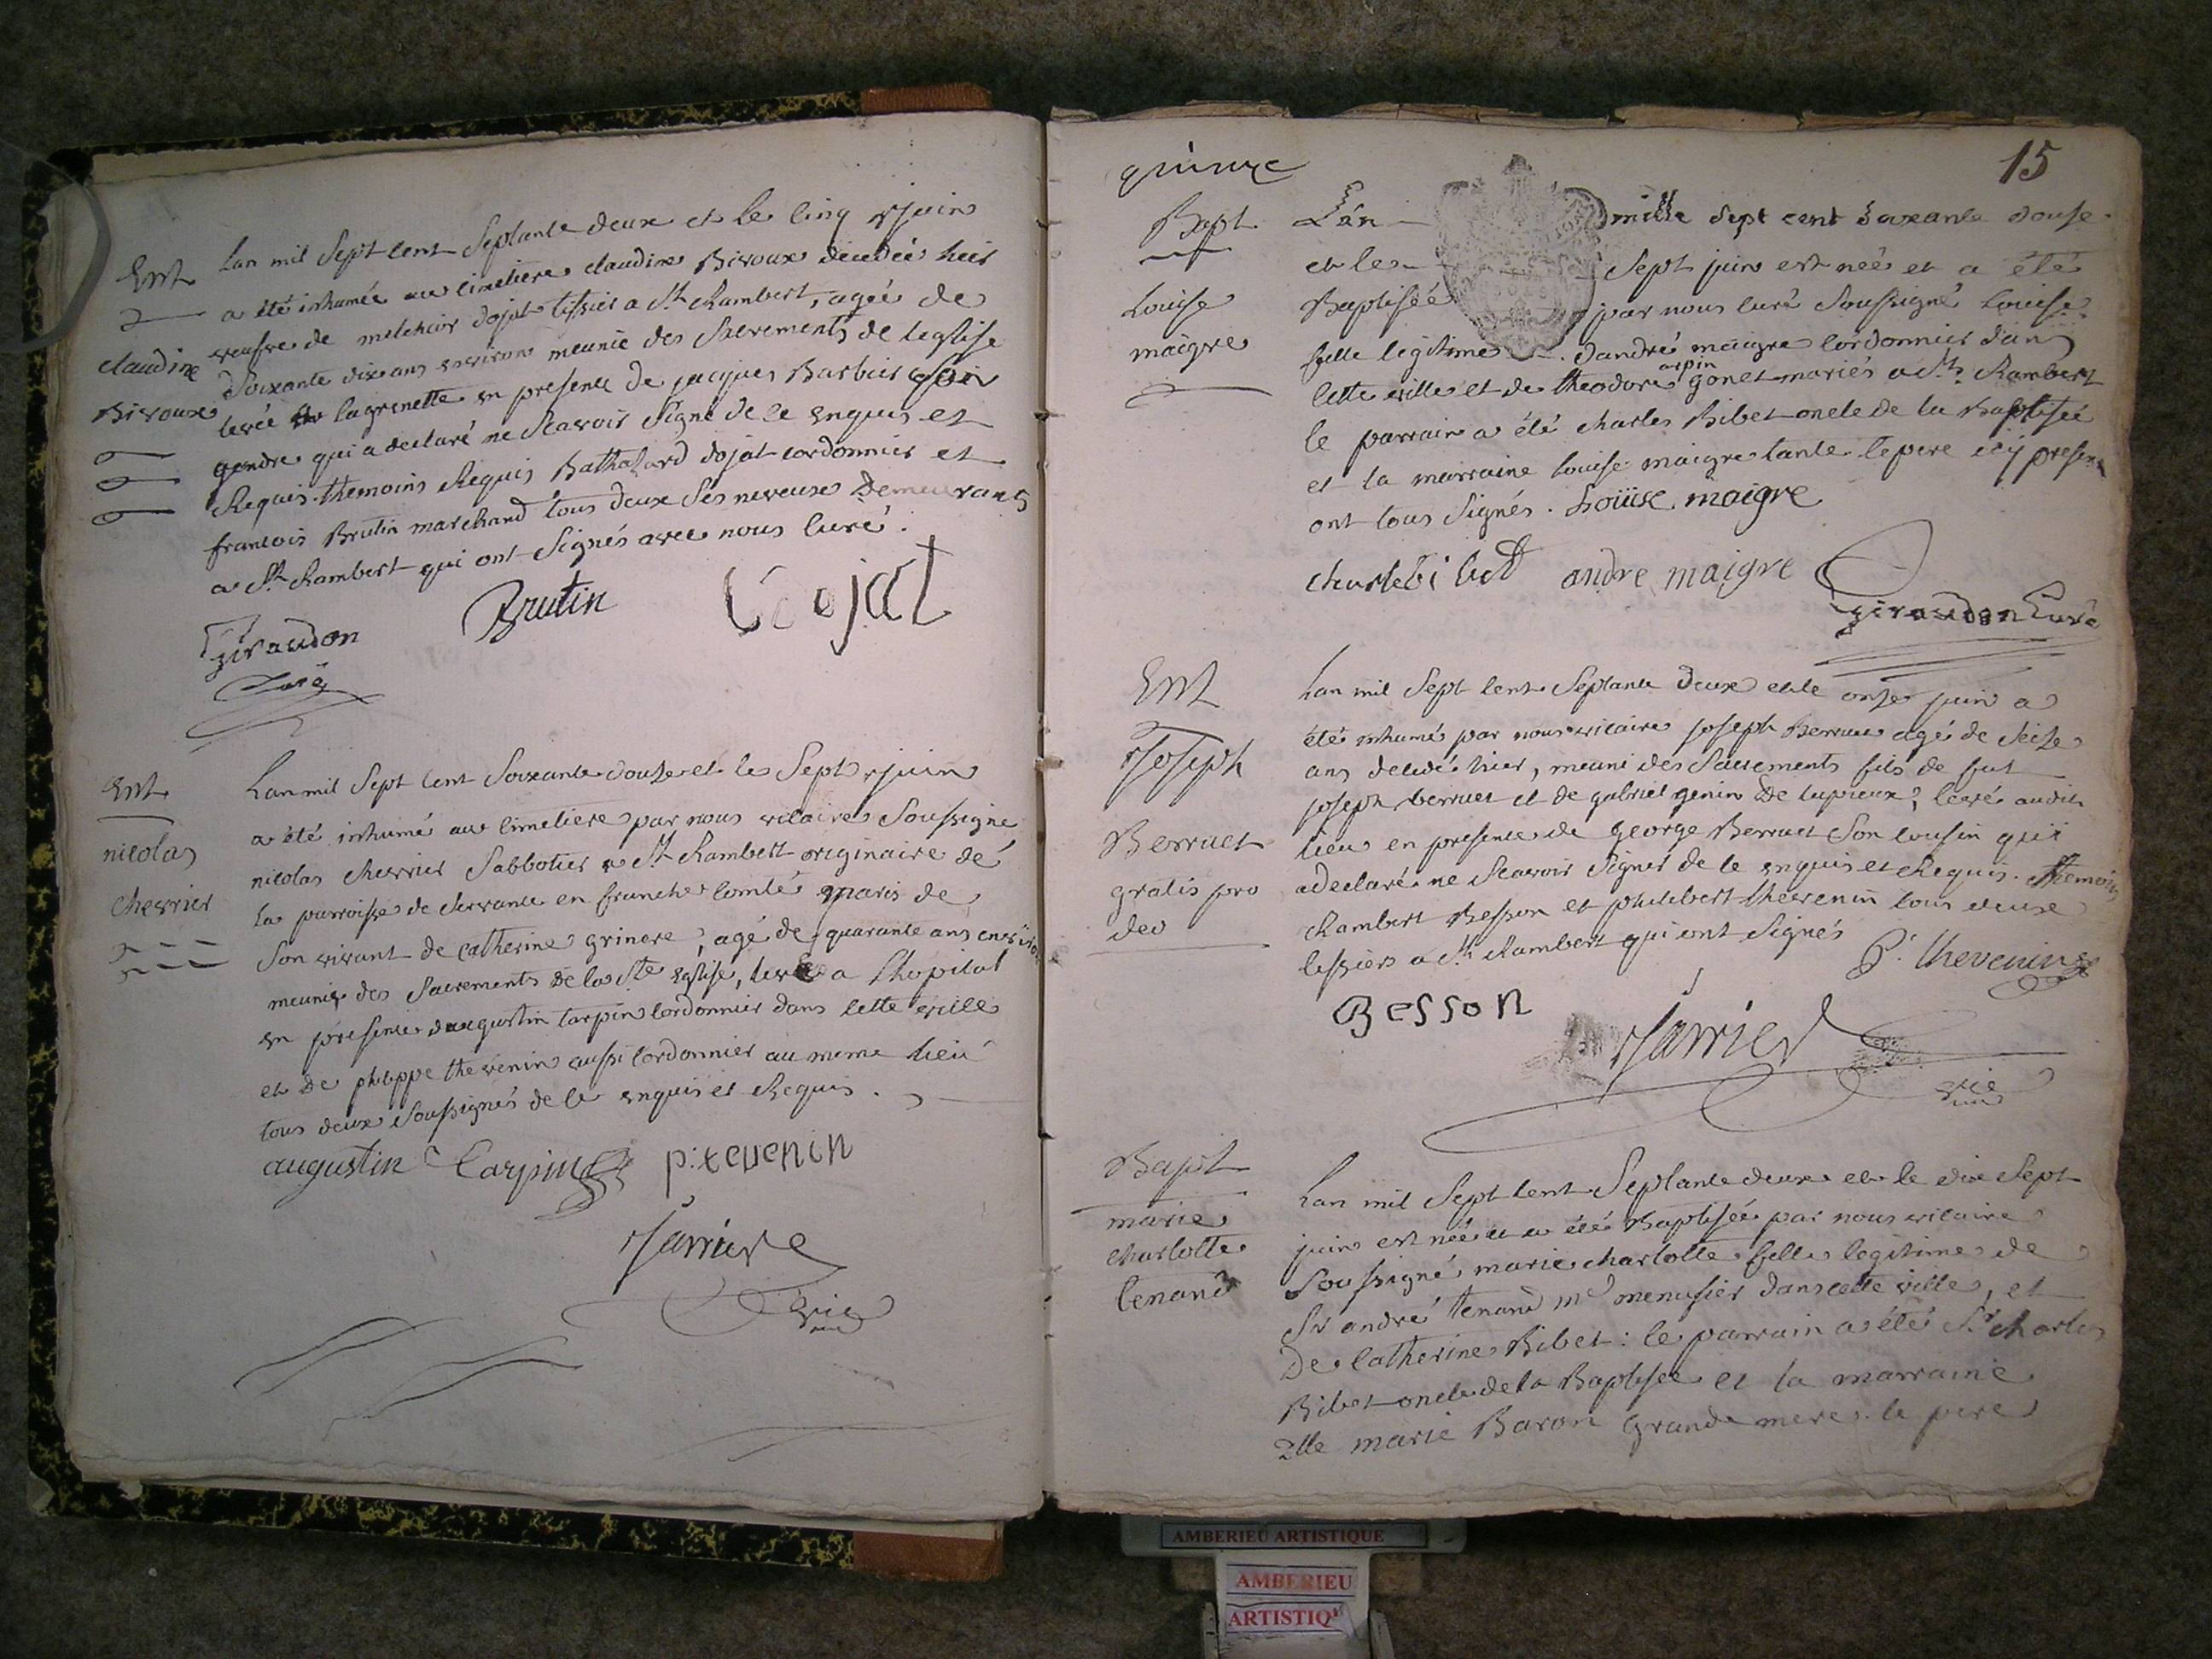 Ent
claudine
Bivoux
Lan mil Sept Cent Septante deux et le Cinq Juin
a été inhumée au Cimetiere claudine Bivoux décedée hier
veufve de melchior dojat tissier a St Rambert, agée de
Soixante dix ans environ meunie des Sacrements de leglise
levée a la grenette en presence de jacques Barbier Son
gendre qui a declaré ne Scavoir Signé de ce enquis et
Requis. themoins Requis Bathazard dojat cordonnier et
francois Brutin marchand tous deux Ses neveux Demeurants
a St Rambert qui ont Signés avec nous Curé.
Giraudon Brutin Dojat
Curé
Ent
nicolas
chevrier
Lan mil Sept Cent Soixante douze et le Sept Juin
a été inhumé au Cimetiere par nous vicaire Soussigné
nicolas chevrier Sabbotier a St Rambert originaire de
la parroisse de Servance en franche Comté maris de
Son vivant de Catherine grinere, agé de quarante ans environ
meunis des Sacrements de la Ste Eglise, levé a Lhopital
en présence daugustin tarpin Cordonnier dans cette ville
et De philippe thevenin aussi Cordonnier au meme lieu
tous deux Soussignés de ce enquis et Requis.
augustin tarpin p: tevenin
Jarrier
vic
quinze
15
Bapt
Louise
maigre
Lan mille sept cent soixante douse
et le Sept juin est née et a été
Baptisée par nous Curé Soussigné Louise
fille legitime dandré maigre Cordonnier dans
arpin
Cette ville et de theodore gonet mariés a St Rambert
le parrain a été charles Bibet oncle de la Baptisée
et la marraine Louise maigre tante le pere icy present
ont tous Signés. Loüise maigre
charle bibet andre maigre
giraudon Curé
Ent
Joseph
Berruet
gratis pro
deo
Lan mil Sept Cent Septante deux et le onze juin a
été inhumé par nous vicaire joseph Berruet agé de Seize
ans decedé hier, meuni des Sacrements fils de fut
joseph berruet et de gabriel genin De lupieux, levé audit
lieu en presence de george Berruet Son Cousin qui
a declaré ne Scavoir Signer de ce enquis et Requis. themoins
Rambert Besson et philibert thevenin tous deux
tessiers a St Rambert qui ont Signés
P. thevenin
Besson
Jarrier
vic
Bapt
marie
charlotte
tenand
Lan mil Sept Cent Septante deux et le dix Sept
juin est née et a été Baptisée par nous vicaire
Soussigné marie charlotte fille legitime de
Sr andré tenand md menusier dans cette ville, et
De Catherine Bibet: le parrain a été Sr charles
Bibet oncle de la Baptisée et la marraine
Dlle marie Baron grande mere. le pere
AMBERIEU ARTISTIQUE
AMBERIEU
ARTISTIQ